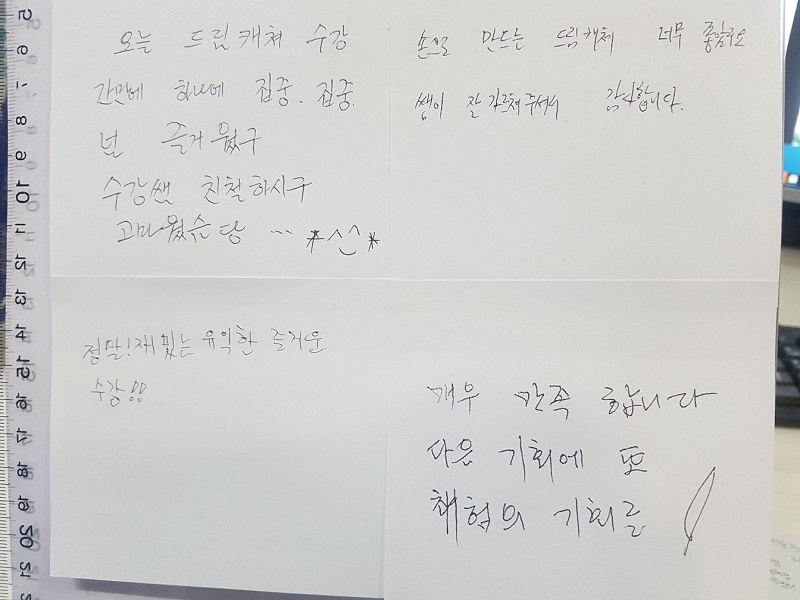 오늘 드림캐쳐 수강
간만에 하나에 집중. 집중.
넘 즐거웠구
수강쌤 친철하시구
고마웠슴당 ... *^^*
손으로 만드는 드림캐쳐 너무 좋았구요
쌤이 잘 가르쳐주셔서 감사합니다.
정말! 재밌는 유익한 즐거운
수강!!
매우 만족 합니다
다음 기회에 또
체험의 기회를
5 6 7 8 9 10 11 12 13 14 15 16 17 18 19 20 21